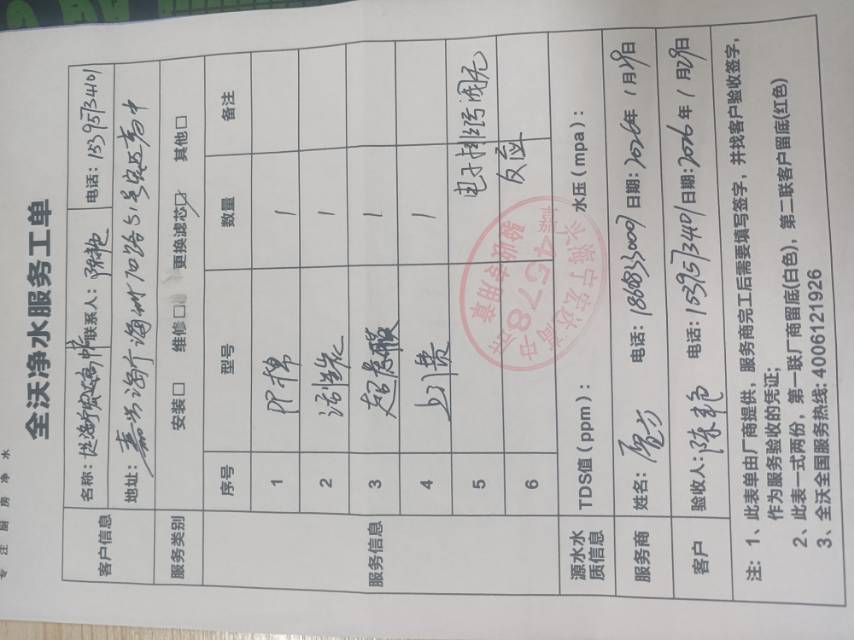 专注厨房净水
全沃净水服务工单
客户信息
名称： 联系人：陈艳 电话：15395734401
地址：嘉兴海宁海州
服务类别
安装□ 维修□ 更换滤芯☑ 其他□
服务信息
序号 型号 数量 备注
1 PP棉 1
2 活性炭 1
3 超滤膜 1
4 上门费 1
5 电子排污阀无
6 反应
嘉兴海宁宏达高中店
4578
验收专用章
源水水质信息 TDS值（ppm）： 水压（mpa）：
服务商 姓名： 电话：18683330007 日期：2026年1月29日
客户 验收人：陈艳 电话：15395734401 日期：2026年1月29日
注：1、此表单由厂商提供，服务商完工后需要填写签字，并找客户验收签字，
作为服务验收的凭证；
2、此表一式两份，第一联厂商留底(白色)，第二联客户留底(红色)
3、全沃全国服务热线：4006121926